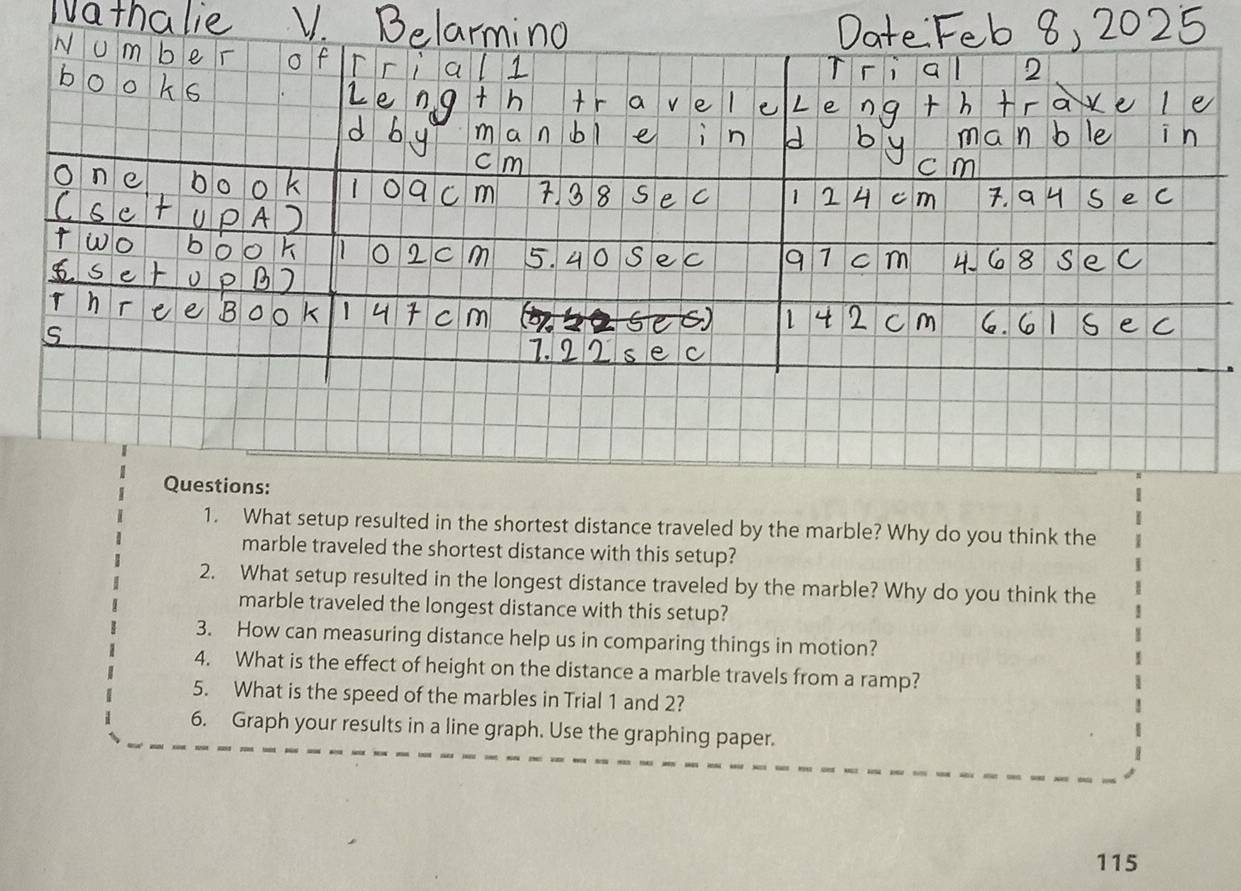 Nathalie V. Belarmino Date: Feb 8, 2025
Number of books Trial 1 Trial 2
Length traveled by manble in cm Length traveled by manble in cm
one book (set up A) 109cm 7.38 sec 124 cm 7.94 sec
two book (set up B) 102cm 5.40 sec 97 cm 4.68 sec
Three Books 147cm 142 cm 6.61 sec
7.22 sec
Questions:
1. What setup resulted in the shortest distance traveled by the marble? Why do you think the
marble traveled the shortest distance with this setup?
2. What setup resulted in the longest distance traveled by the marble? Why do you think the
marble traveled the longest distance with this setup?
3. How can measuring distance help us in comparing things in motion?
4. What is the effect of height on the distance a marble travels from a ramp?
5. What is the speed of the marbles in Trial 1 and 2?
6. Graph your results in a line graph. Use the graphing paper.
115